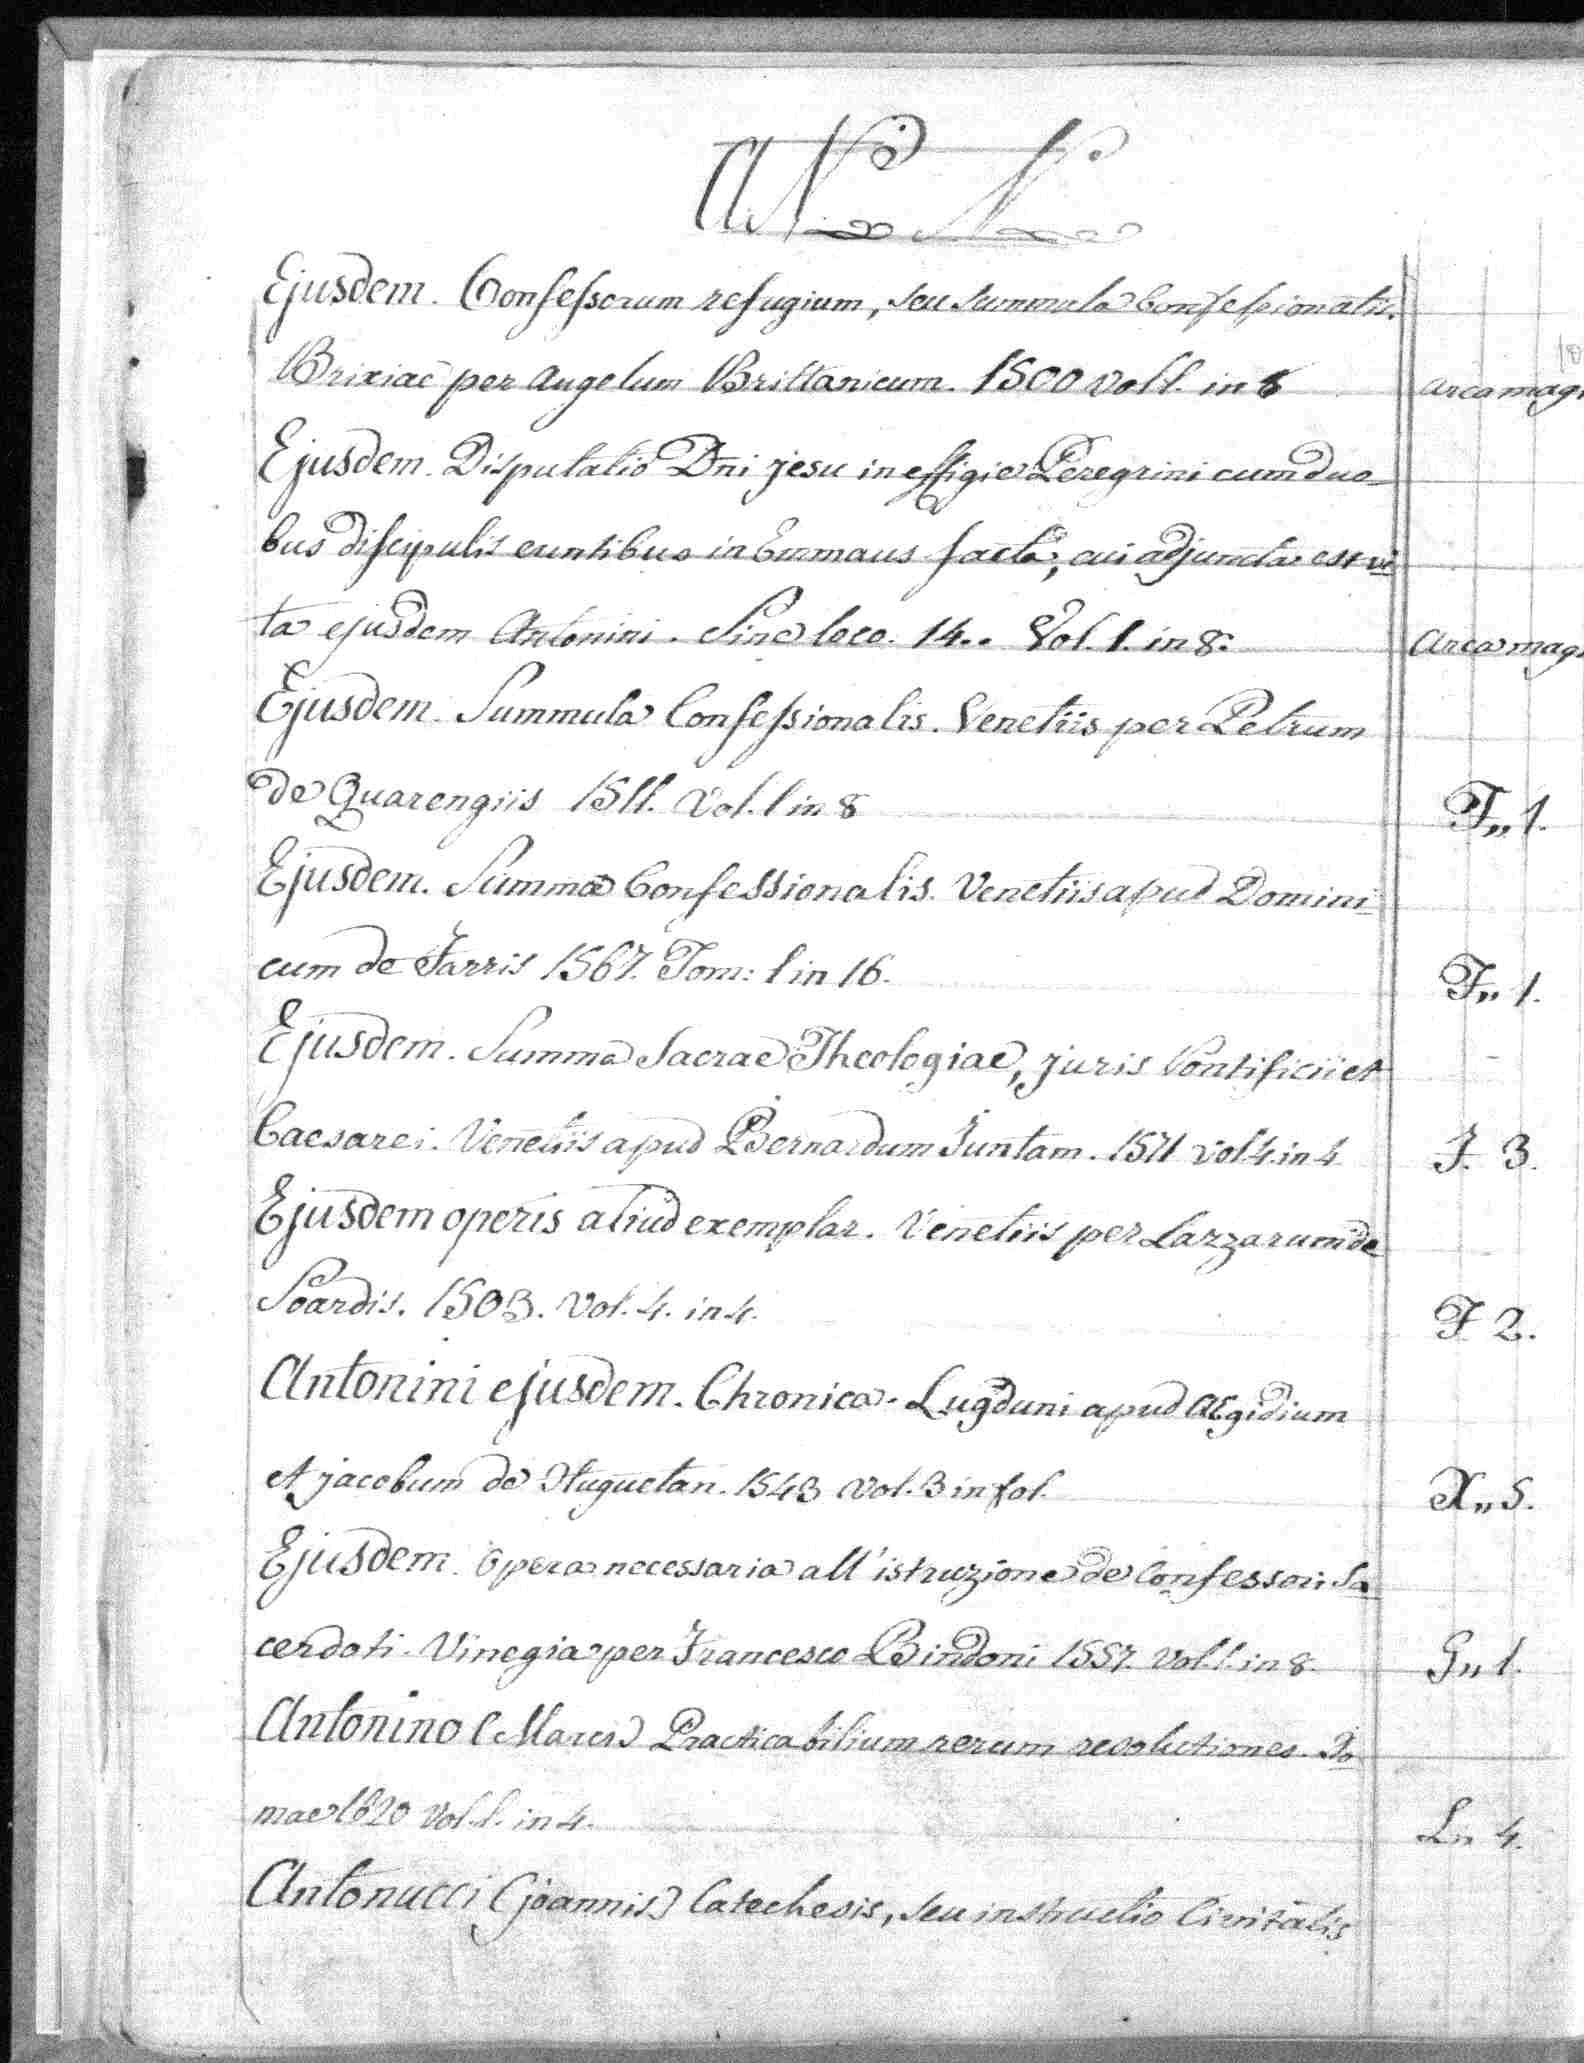 AN N
Ejusdem. Confessorum refugium, seu summula Confessionalis.
Brixiae per Angelum Brittanicum. 1500 Vol 1. in 8 Arca mag
Ejusdem. Disputatio Dni jesu in effigie Peregrini cum duo-
bus discipulis euntibus in Emmaus facta, cui adjuncta est vi
ta ejusdem Antonini. Sine loco. 14.. Vol. 1. in 8. Arca mag
Ejusdem. Summula Confessionalis. Venetiis per Petrum
de Quarengiis 1511. Vol. 1 in 8 F,, 1.
Ejusdem. Summa Confessionalis. Venetiis apud Domini
cum de Farris 1567. Tom: 1 in 16. F,, 1.
Ejusdem. Summa Sacrae Theologiae, juris Pontificii et
Caesarei. Venetiis apud Bernardum Juntam. 1571 Vol 4. in 4 F. 3.
Ejusdem operis aliud exemplar. Venetiis per Lazzarum de
Soardis. 1503. Vol. 4. in 4. F 2.
Antonini ejusdem. Chronica. Lugduni apud Aegidium
et jacobum de Huguetan. 1543 Vol. 3 in fol. X,, 5.
Ejusdem. Opera necessaria all' istruzione de Confessori Sa
cerdoti. Vinegia per Francesco Bindoni 1557. Vol. 1. in 8. G,, 1.
Antonino (Marci) Practicabilium rerum resolutiones. Ro
mae 1620 Vol. 1. in 4. L,, 4.
Antonucci (joannis) Catechesis, seu instructio Civitatis